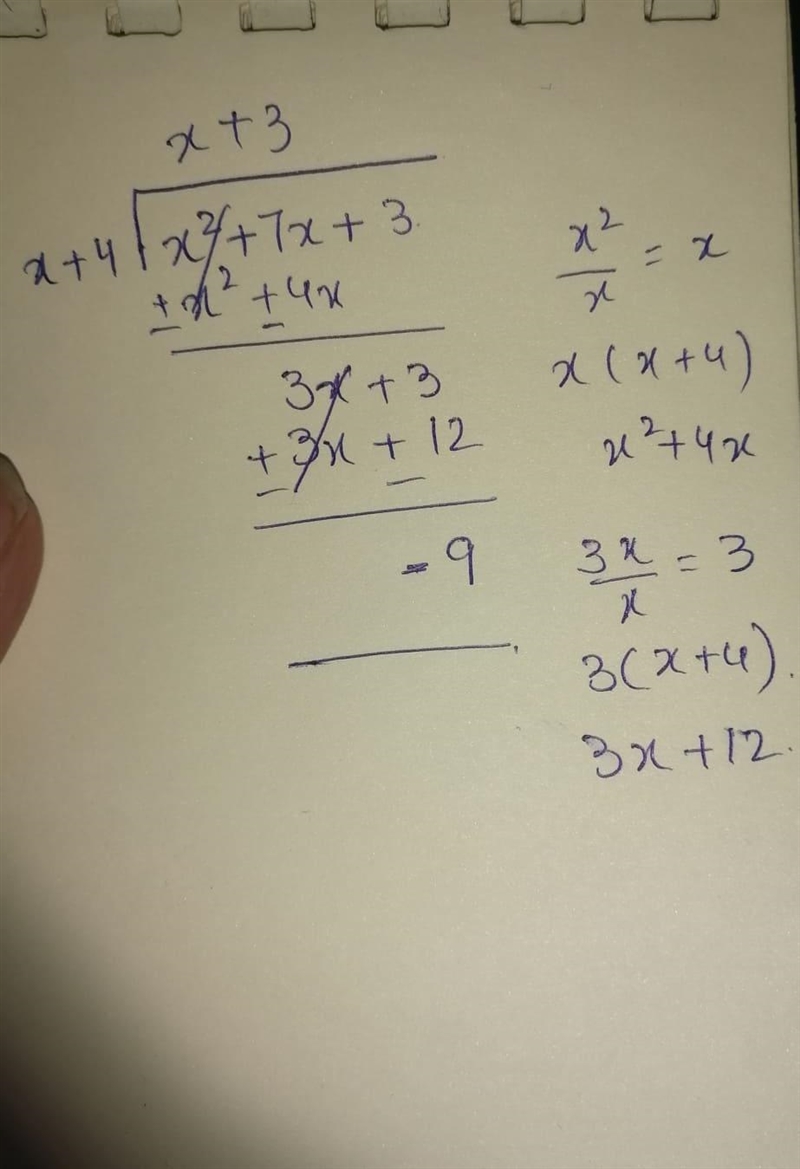 x + 3
x + 4 √ x² + 7x + 3
± x² ± 4x
3x + 3
± 3x ± 12
- 9
x²/x = x
x (x + 4)
x² + 4x
3x/x = 3
3(x + 4).
3x + 12.